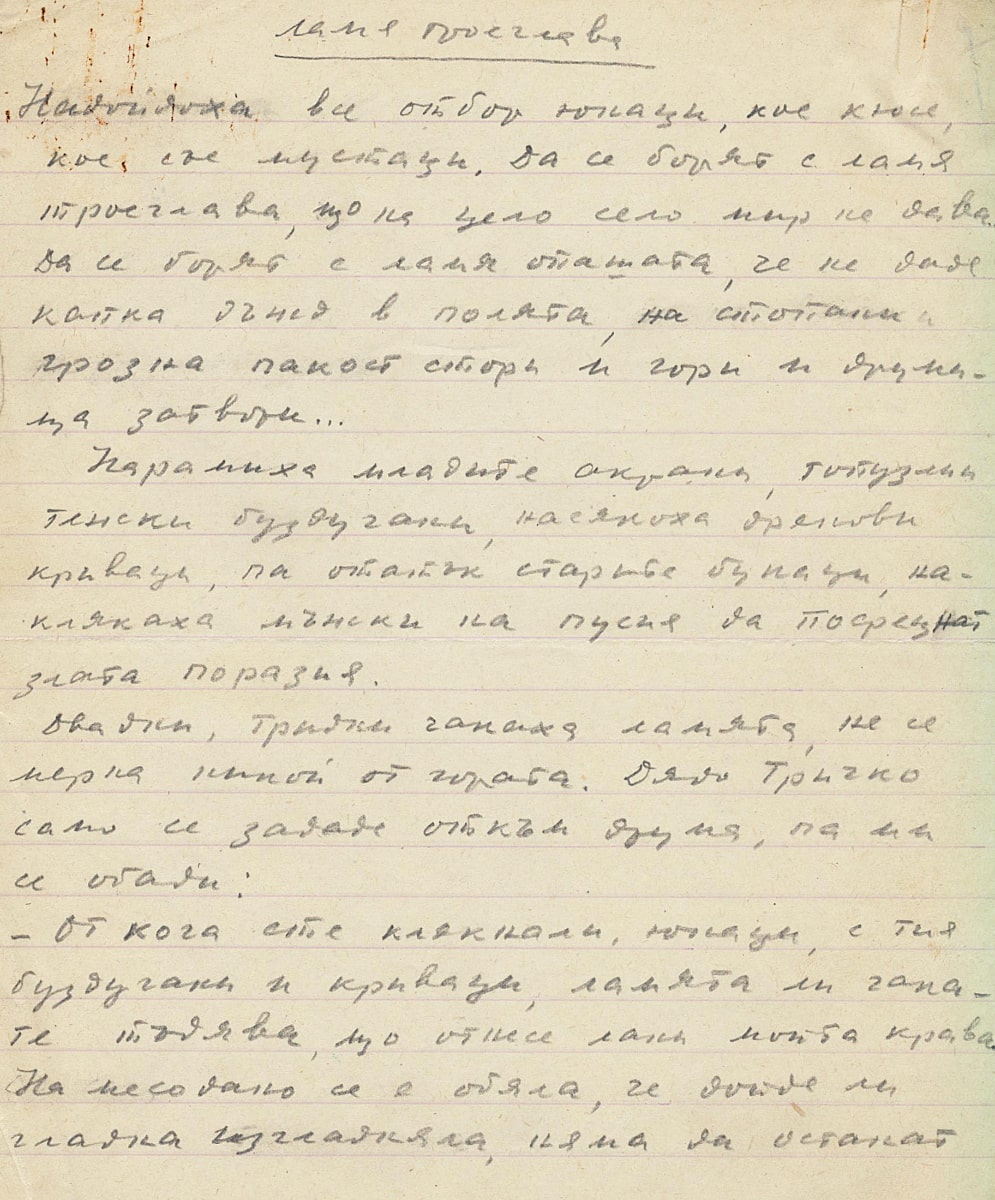 ламя троеглава
Надойдоха все отбор юнаци, кое кюсе,
кое със мустаци. Да се борят с ламя
троеглава, що на цело село мир не дава.
Да се борят с ламя опашата, че не даде
капка дъжд в полята, на стопани
грозна пакост стори и гори и друми-
ща затвори...
Нарамиха младите акрани, топузлии
тежски буздугани, насякоха дренови
криваци, па отатък старите бунаци, на-
клякаха мъжски на пусия да посрещнат
злата поразия.
Двадни, тридни чакаха ламята, не се
мерка никой от гората. Дядо Тричко
само се зададе откъм друма, па им
се обади:
- От кога сте клякнали, юнаци, с тия
буздугани и криваци, ламята ли чака-
те тъдява, що отнсе лани мойта крава.
На месо дано се е обяла, че дойде ли
гладна изгладняла, няма да останат